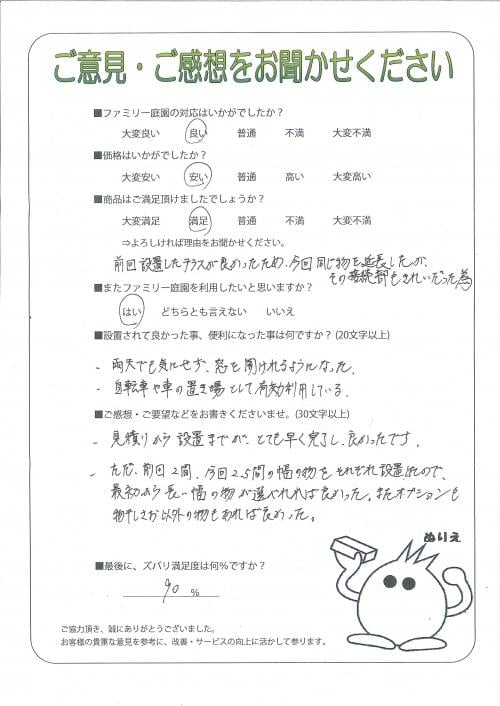 ご意見・ご感想をお聞かせください
■ファミリー庭園の対応はいかがでしたか？
大変良い 良い 普通 不満 大変不満
■価格はいかがでしたか？
大変安い 安い 普通 高い 大変高い
■商品はご満足頂けましたでしょうか？
大変満足 満足 普通 不満 大変不満
⇒よろしければ理由をお聞かせください。
前回設置したテラスが良かったため、今回同じ物を延長したが、
その接続部もきれいだった為
■またファミリー庭園を利用したいと思いますか？
はい どちらとも言えない いいえ
■設置されて良かった事、便利になった事は何ですか？(20文字以上)
- 雨天でも気にせず、窓を開けれるようになった.
- 自転車や車の置き場として有効利用している.
■ご感想・ご要望などをお書きくださいませ。(30文字以上)
- 見積りから設置までが、とても早く完了し、良かったです.
- ただ、前回2間、今回2.5間の幅の物をそれぞれ設置したので、
最初から長い幅の物が選べれれば良かった。またオプションも
物干しざお以外の物もあれば良かった。
ぬりえ
■最後に、ズバリ満足度は何％ですか？
90 %
ご協力頂き、誠にありがとうございました。
お客様の貴重な意見を参考に、改善・サービスの向上に活かして参ります。